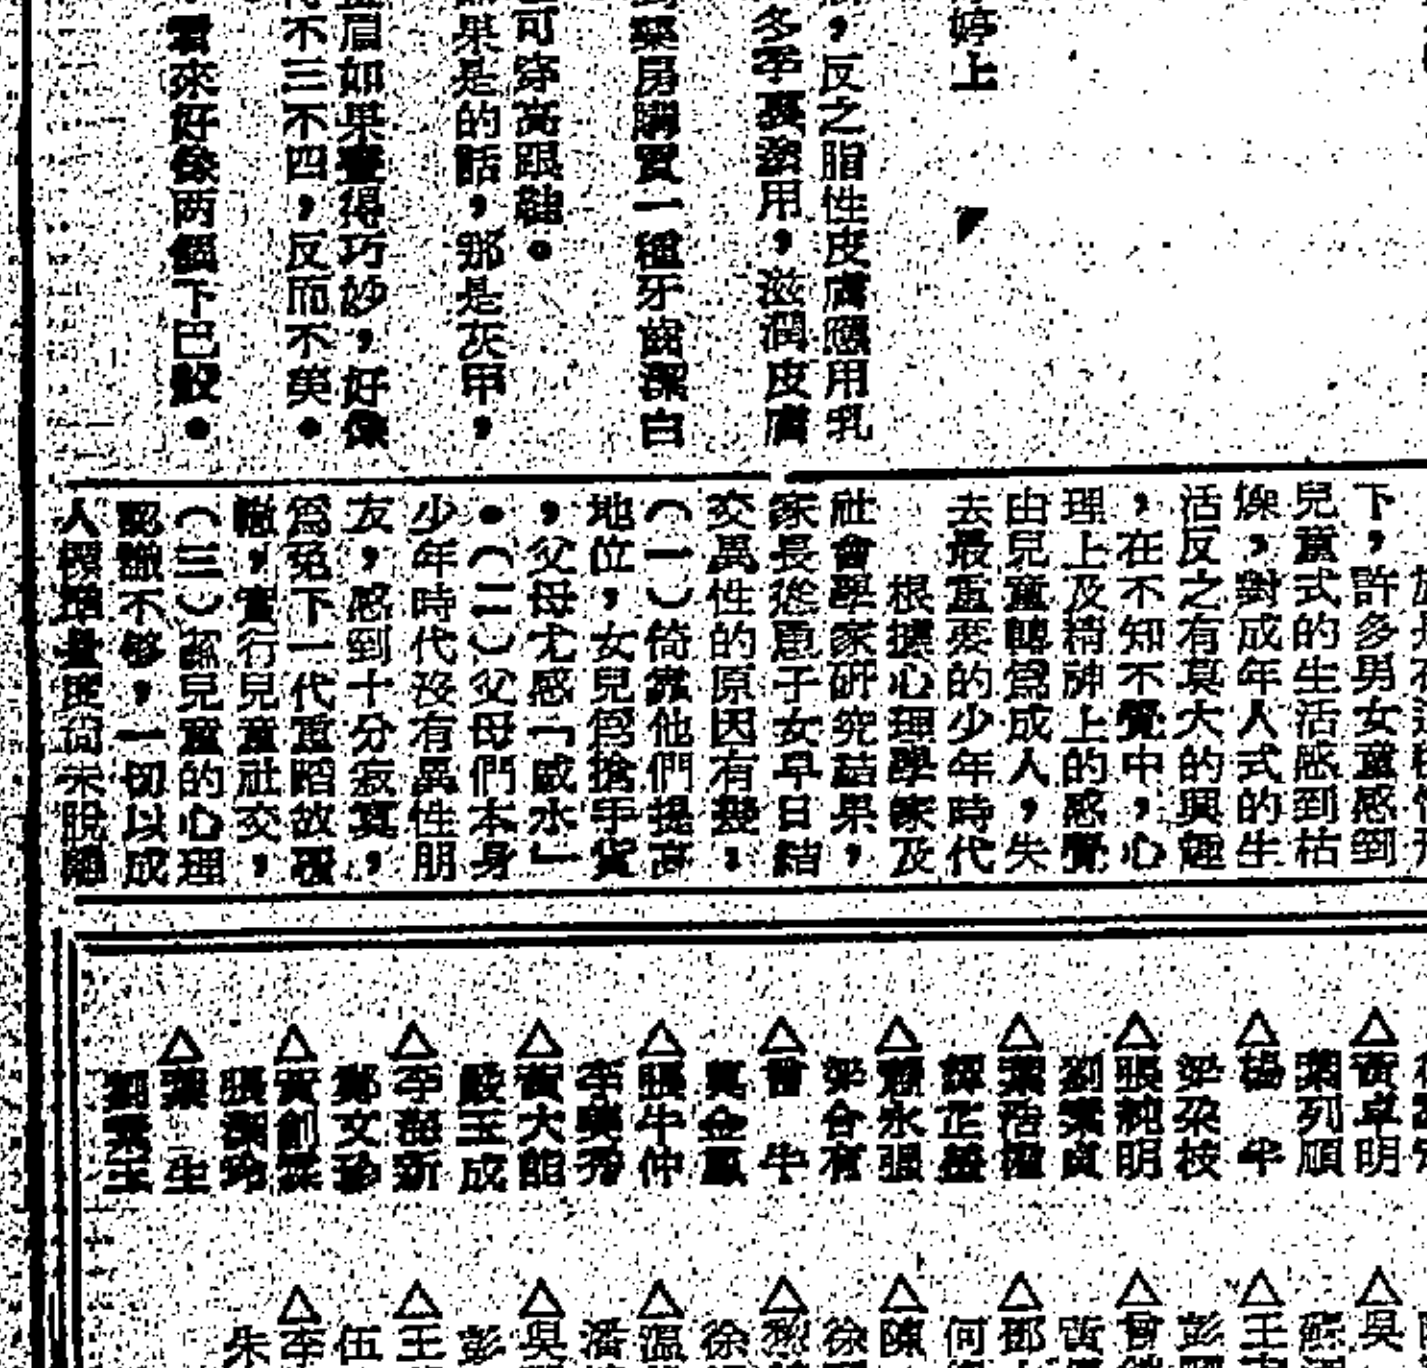 婷上
，反之脂性皮膚應用乳
冬季裏塗用，滋潤皮膚
藥房購買一種牙齒潔白
可穿高跟鞋。
果是的話，那是灰甲，
眉如果畫得巧妙，好像
不三不四，反而不美。
看來好像两個下巴般。
下，許多男女童感到
兒童式的生活感到枯
燥，對成年人式的生
活反之有莫大的興趣
，在不知不覺中，心
理上及精神上的感覺
由兒童轉爲成人，失
去最重要的少年時代
根據心理學家及
社會學家研究結果，
家長慫恿子女早日結
交異性的原因有幾：
（一）倚靠他們提高
地位，女兒爲搶手貨
，父母尤感「威水」
。（二）父母們本身
少年時代沒有異性朋
友，感到十分寂寞，
爲免下一代重蹈故轍
，實行兒童社交，
（三）孫兒童的心理
認識不够，一切以成
人擇增量度尚未脫離
△黃卓明
葉列順
△楊 牛
梁朶枝
△張純明
劉賽貞
△葉浩權
譚正盛
△趙永强
梁合有
△曾 牛
莫金鳳
△張牛仲
李美秀
△黃大館
殷玉成
△李超新
鄭文珍
△黃創霖
張漢玲
△葉 生
劉葉玉
△吳
蘇
△王
彭
△曾
黃
△鄧
何
△陳
徐
徐
△溫
潘
△吳
彭
△王
伍
△李
朱